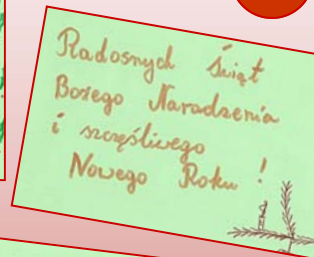 Radosnych Świąt
Bożego Narodzenia
i szczęśliwego
Nowego Roku!